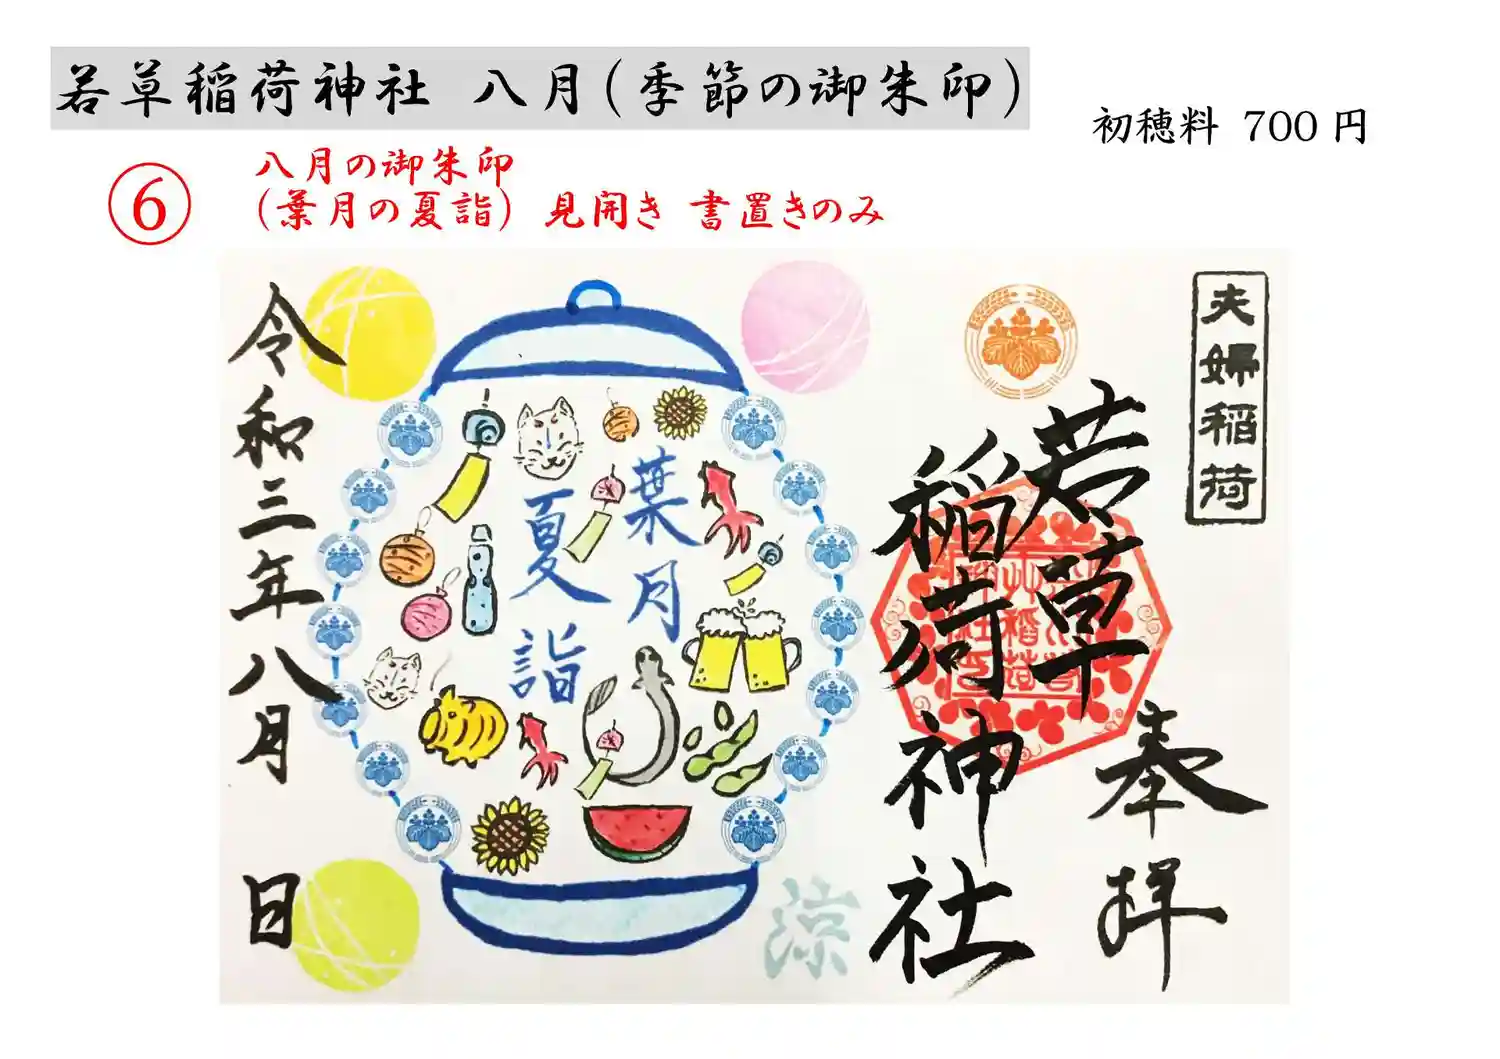 若草稲荷神社 八月(季節の御朱印)
初穂料 700 円
⑥
八月の御朱印
(葉月の夏詣) 見開き 書置きのみ
夫婦稲荷
奉拝
若草
稲荷神社
葉月
夏詣
涼
令和三年八月 日